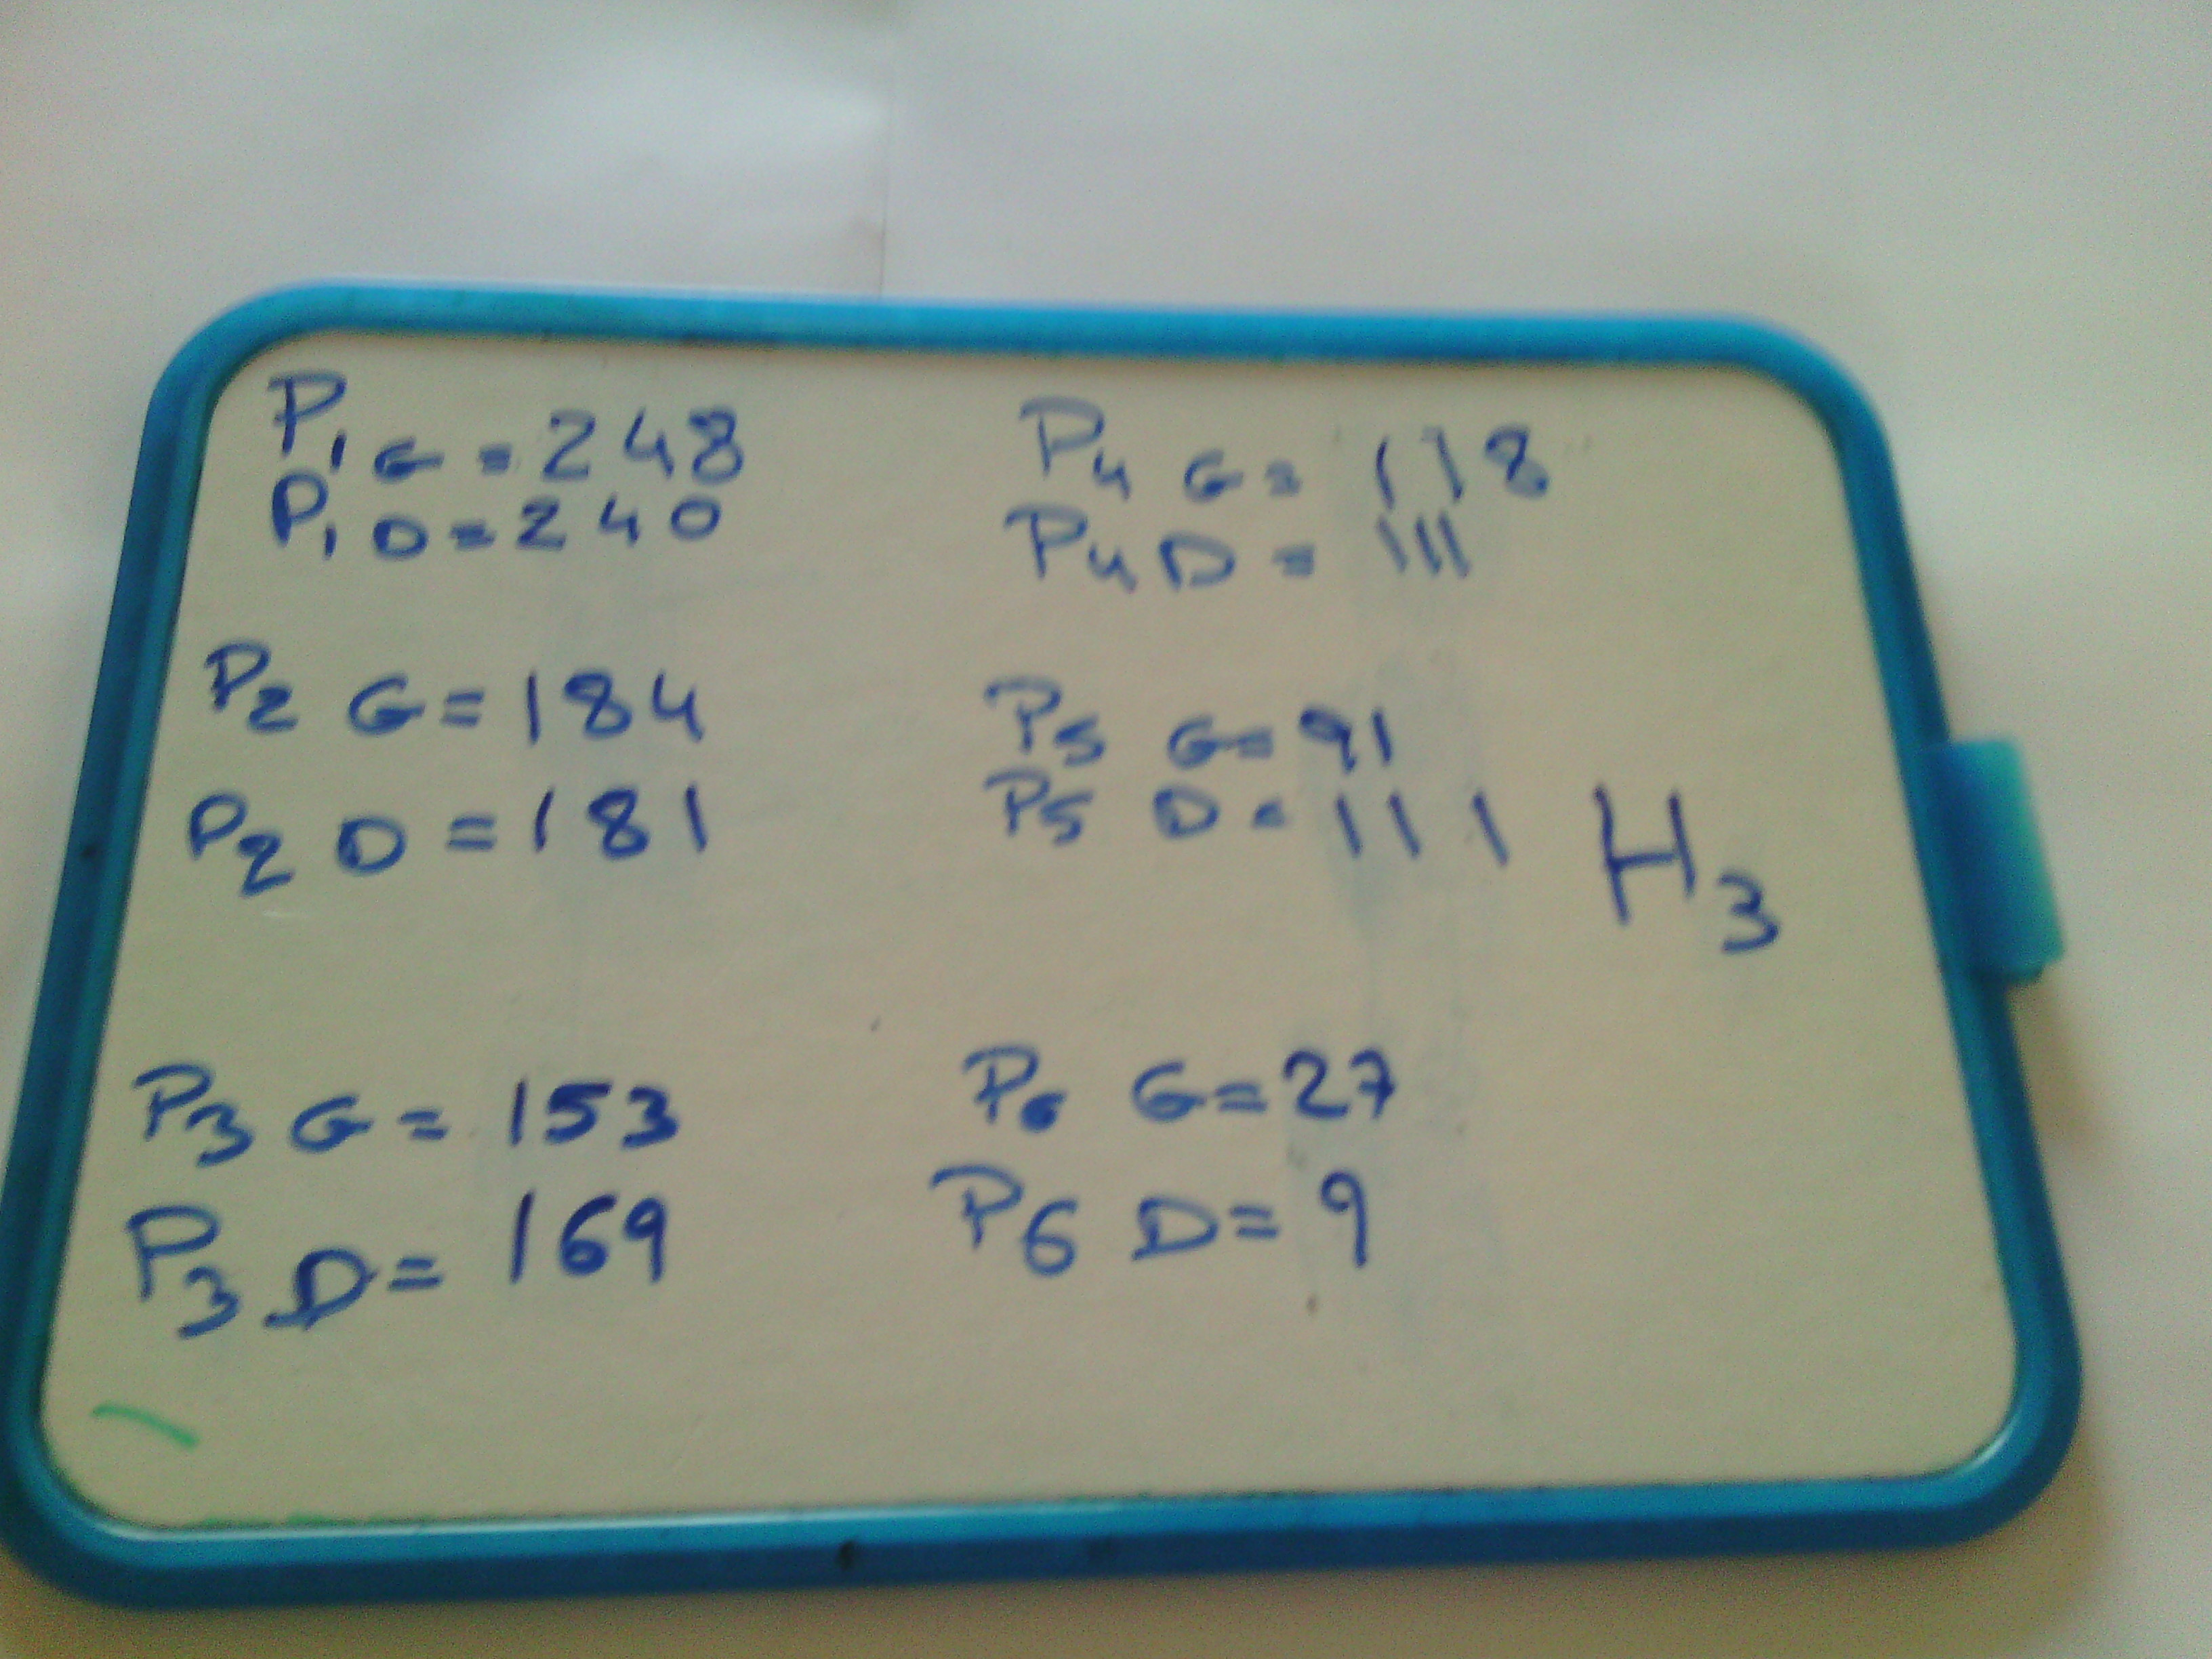 P1 G = 248
P1 D = 240
P2 G = 184
P2 D = 181
P3 G = 153
P3 D = 169
P4 G = 118
P4 D = 111
P5 G = 91
P5 D = 111
H3
P6 G = 27
P6 D = 9